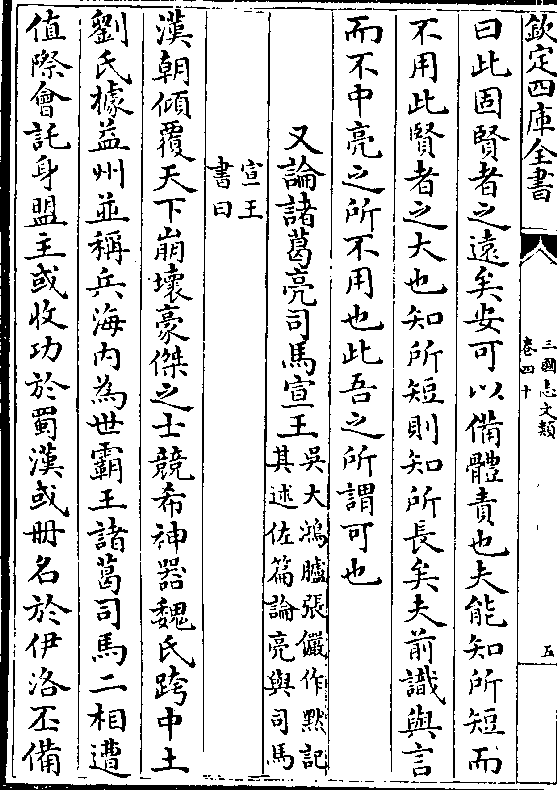 欽定四庫全書
三國志文類
卷四十
五
曰此固賢者之遠矣安可以備體責也夫能知所短而
不用此賢者之大也知所短則知所長矣夫前識與言
而不中亮之所不用也此吾之所謂可也
又論諸葛亮司馬宣王
吳大鴻臚張儼作黙記
其述佐篇論亮與司馬
宣王
書曰
漢朝傾覆天下崩壞豪傑之士競希神器魏氏跨中土
劉氏據益州並稱兵海内為世霸王諸葛司馬二相遭
值際會託身盟主或收功於蜀漢或冊名於伊洛丕備